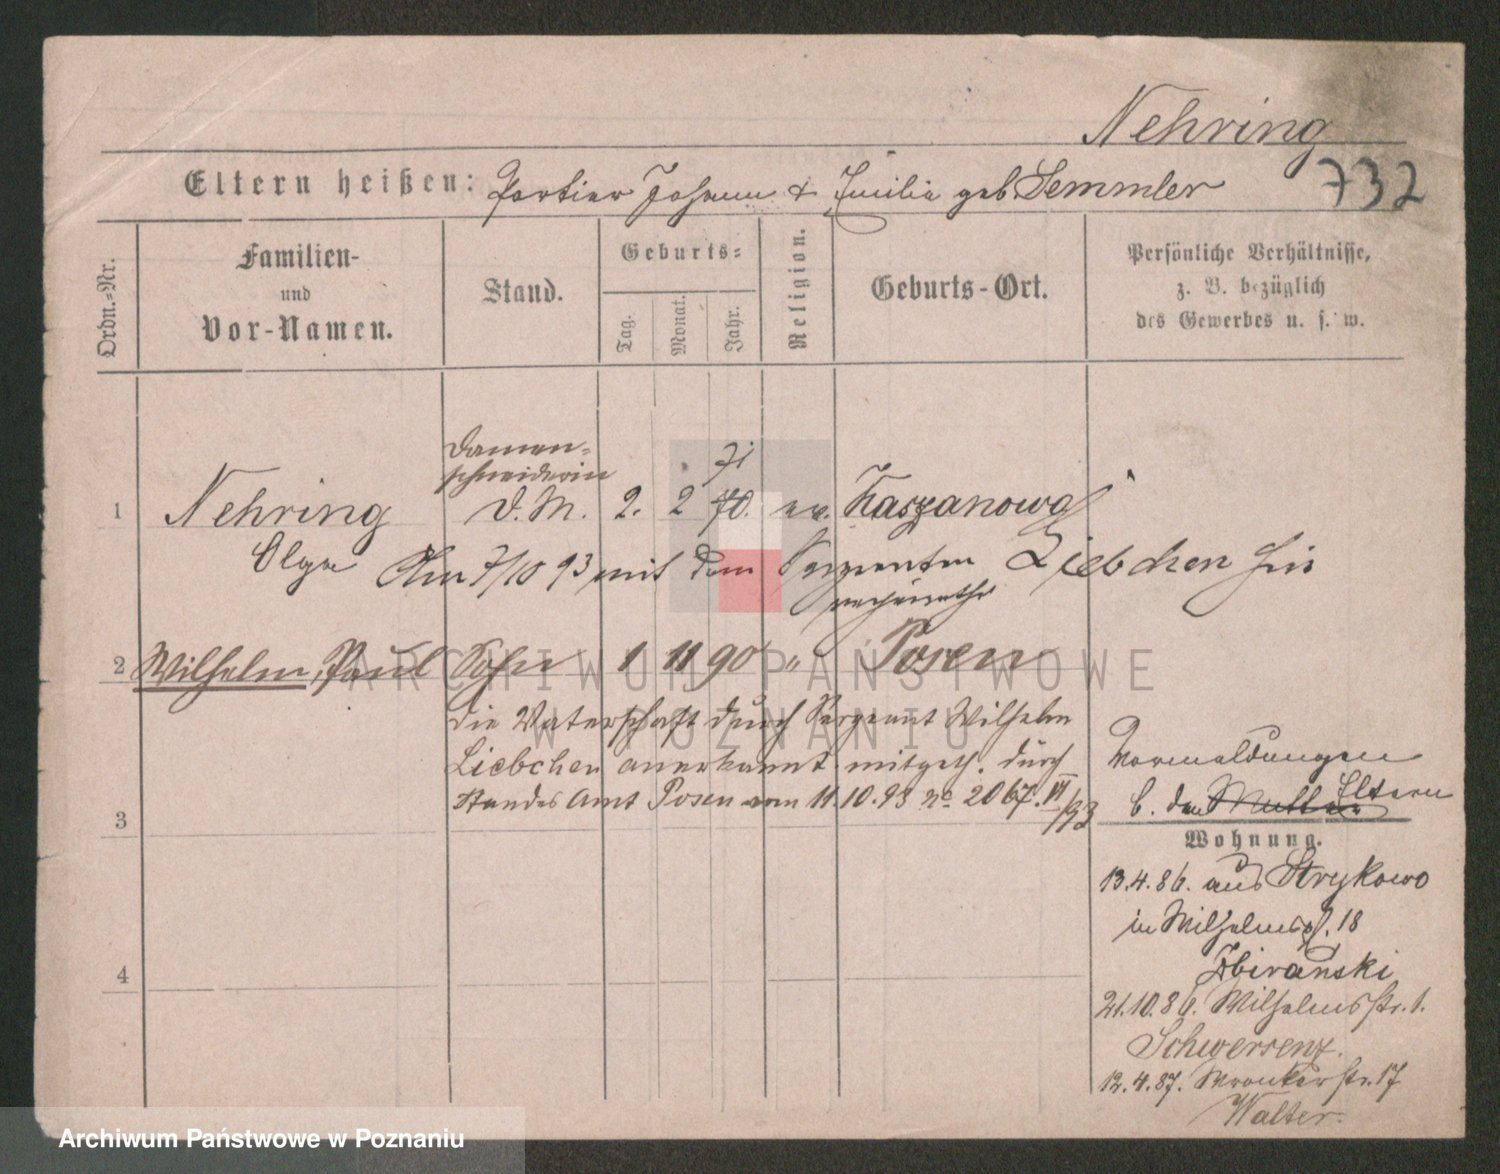 Nehring
Eltern heißen: Portier Johann & Emilie geb Semmler 732
Ordn.=Nr.
Familien-
und
Vor-Namen.
Stand.
Geburts=
Tag.
Monat.
Jahr.
Religion.
Geburts-Ort.
Persönliche Verhältnisse,
z. B. bezüglich
des Gewerbes u. s. w.
Damen=
schneiderin
71
1 Nehring D. M. 2. 2 70. ev. Kaszanowo
Olga Am 7/10 93 mit dem Sergeanten Liebchen hier
verheirathet
2 Wilhelm, Paul Sohn 1 11 90 " Posen
die Vaterschaft durch Sergeant Wilhelm
Liebchen anerkannt. mitgeth. durch
Standes Amt Posen vom 11.10.93 No 2067. VI
/93
Vormeldungen
b. den Mutter Eltern
3
Wohnung.
13.4.86. aus Strykowo
in Wilhelmspl. 18
Zbiranski
4
21.10.86. Wilhelmsstr. 1.
Schwersenz.
12.4.87. Wronkerstr. 17
Walter.
ARCHIWUM PAŃSTWOWE
W POZNANIU
Archiwum Państwowe w Poznaniu